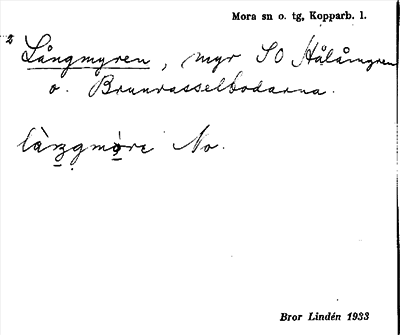 Mora sn o. tg, Kopparb. l.
2 Långmyren, myr SO Hålåmyren
o. Brunnasselbodarna.
No.
Bror Lindén 1933